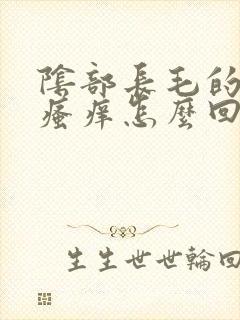 陰部長毛的
瘙痒怎麼回
生生世世輪回